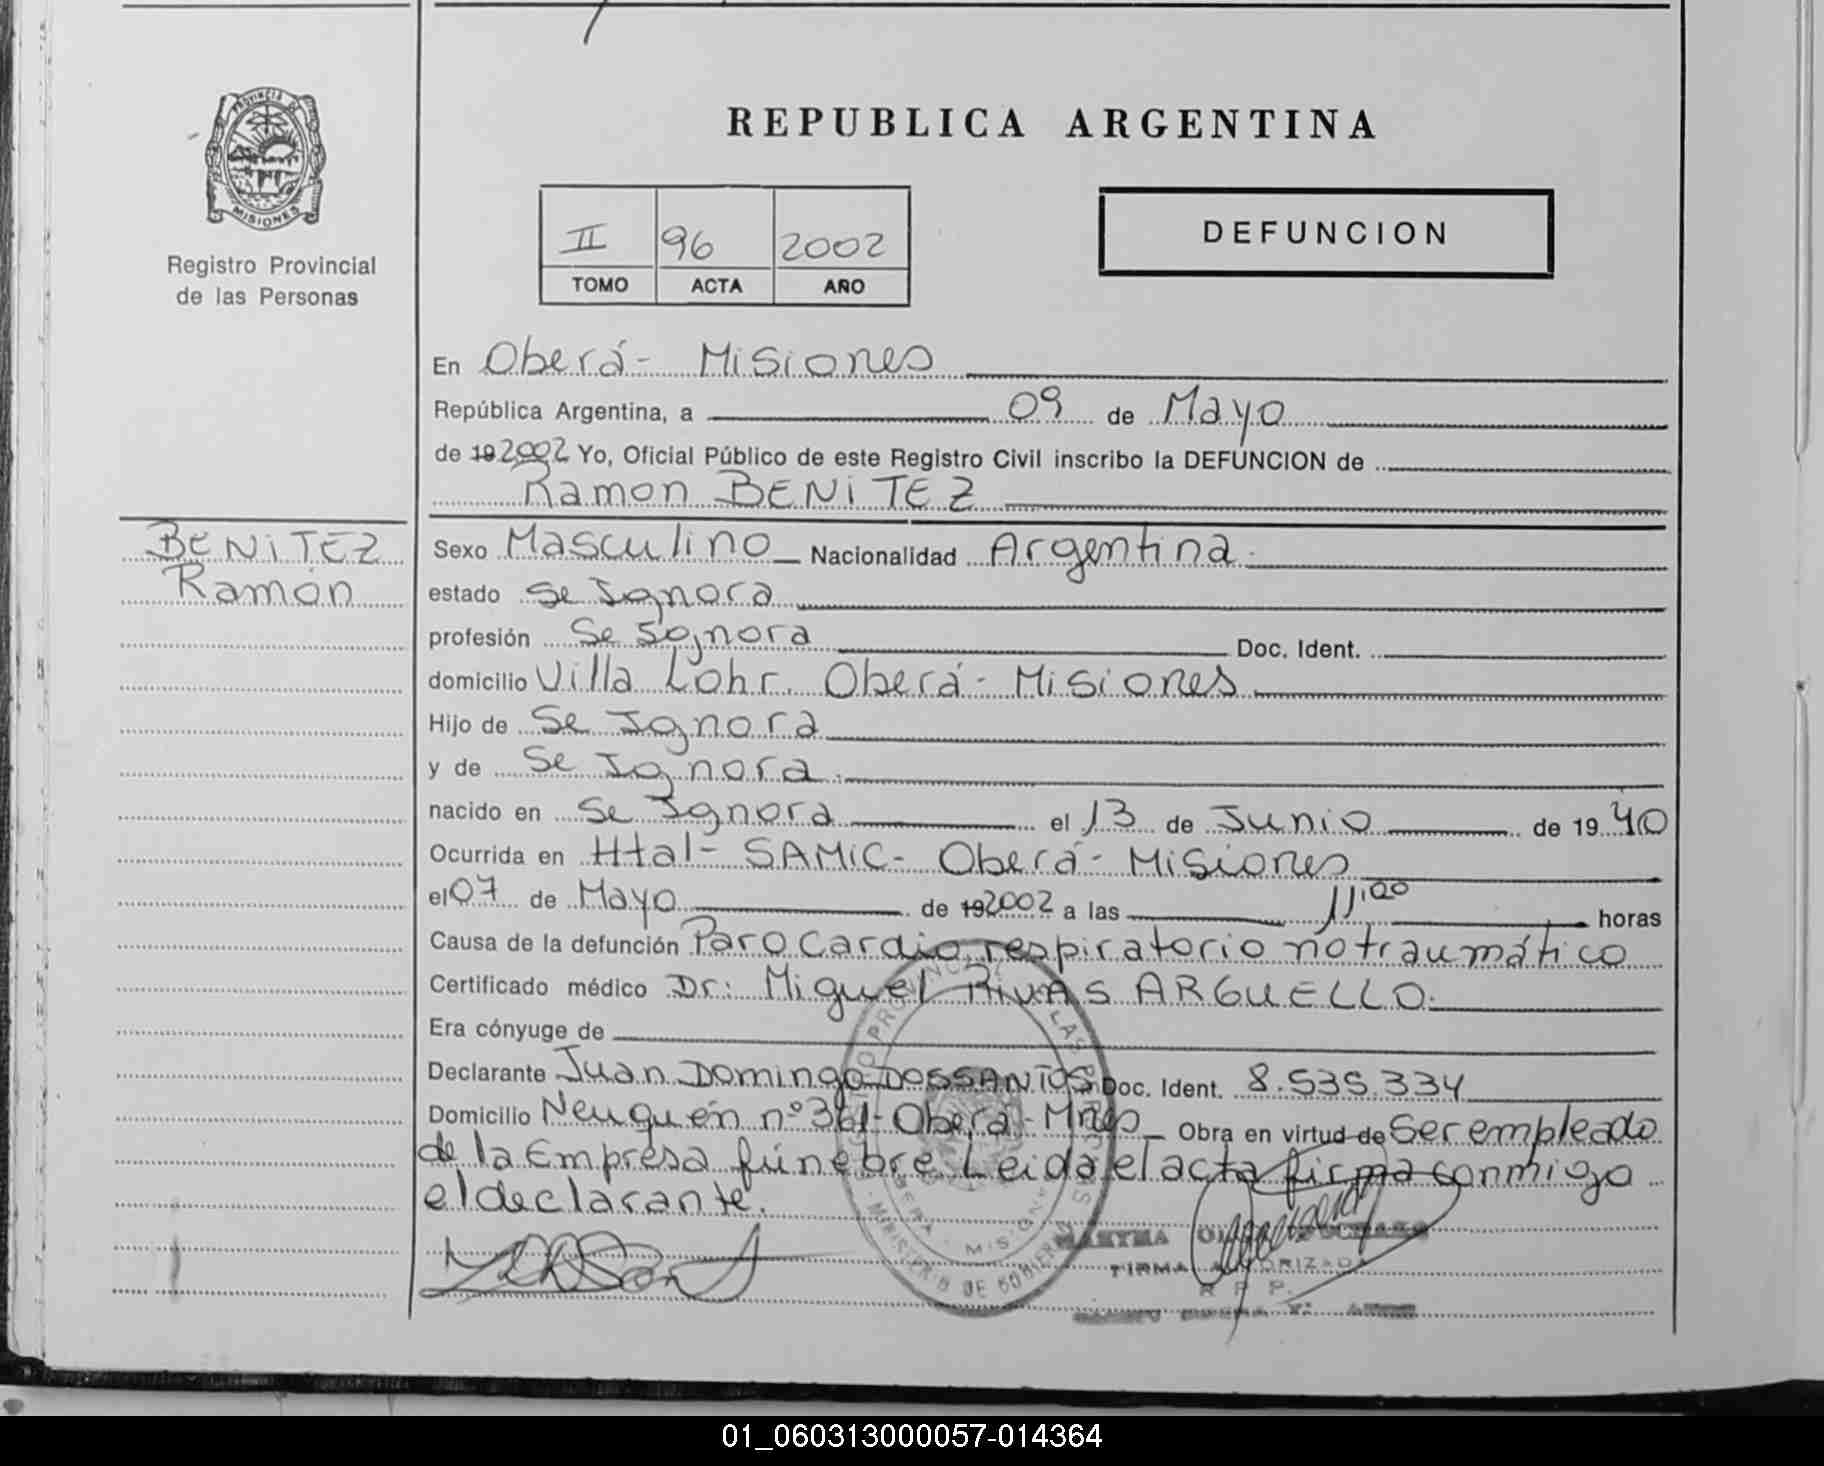 PROVINCIA DE
MISIONES
Registro Provincial
de las Personas
REPUBLICA ARGENTINA
II 96 2002
TOMO ACTA AÑO
DEFUNCION
En Oberá - Misiones
República Argentina, a 09 de Mayo
de 19 2002 Yo, Oficial Público de este Registro Civil inscribo la DEFUNCION de
Ramon BENITEZ
BENITEZ
Ramón
Sexo Masculino Nacionalidad Argentina.
estado Se Ignora
profesión Se Ignora Doc. Ident.
domicilio Villa Lohr. Oberá - Misiones
Hijo de Se Ignora
y de Se Ignora.
nacido en Se Ignora el 13 de Junio de 19 40
Ocurrida en Htal - SAMIC - Oberá - Misiones
el 07 de Mayo de 19 2002 a las 11,00 horas
Causa de la defunción Paro Cardio respiratorio no traumático
Certificado médico Dr: Miguel RIVAS ARGUELLO.
Era cónyuge de
Declarante Juan Domingo DOSSANTOS Doc. Ident. 8.535.334
Domicilio Neuquén nº 361 - Oberá - Mnes Obra en virtud de Ser empleado
de la Empresa fúnebre. Leida el acta firma conmigo
el declarante.
MINISTERIO DE GOBIERNO
FIRMA AUTORIZADA
R P P.
01_060313000057-014364